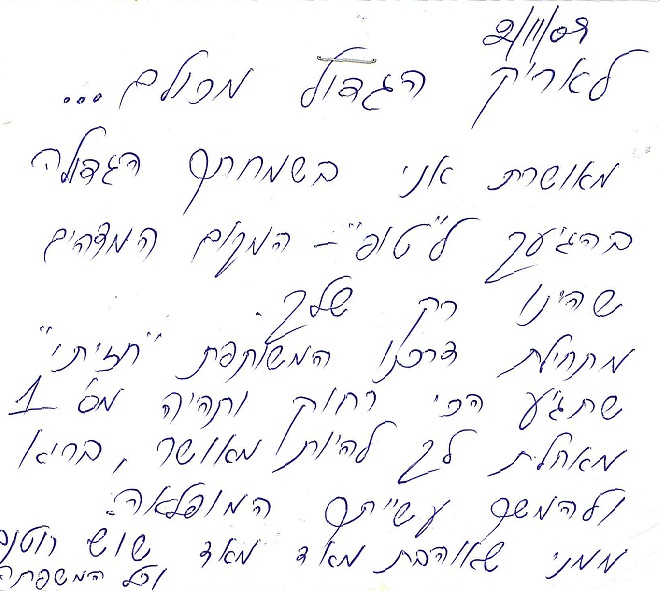 2/11/09
לאריק הגדול מכולם...
מאושרת אני בשמחתך הגדולה
בהגיעך ל"טופ" - המקום המדהים
שהינו רק שלך.
מתחילת דרכנו המשותפת "חזיתי"
שתגיע הכי רחוק ותהיה מס' 1
מאחלת לך להיות מאושר, בריא
ולהמשך עשייתך המופלאה.
ממני שאוהבת מאד מאד שוש
וכל המשפחה